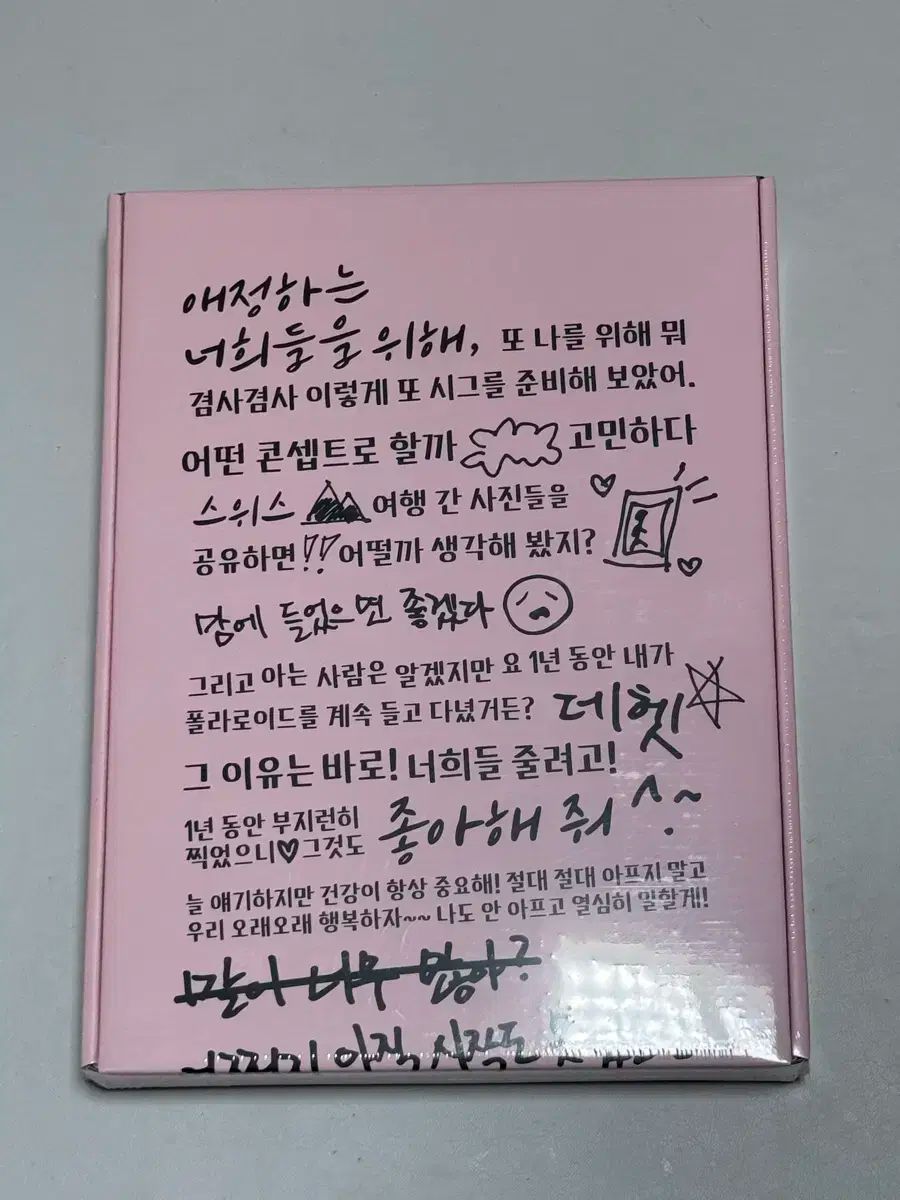 애정하는
너희들을 위해, 또 나를 위해 뭐
겸사겸사 이렇게 또 시그를 준비해 보았어.
어떤 콘셉트로 할까 고민하다
스위스 여행 간 사진들을
공유하면!! 어떨까 생각해 봤지?
맘에 들었으면 좋겠다
그리고 아는 사람은 알겠지만 요 1년 동안 내가
폴라로이드를 계속 들고 다녔거든? 데헷
그 이유는 바로! 너희들 줄려고!
1년 동안 부지런히
찍었으니♡그것도 좋아해 줘^.~
늘 얘기하지만 건강이 항상 중요해! 절대 절대 아프지 말고
우리 오래오래 행복하자~~ 나도 안 아프고 열심히 일할게!!
말이 너무 많아?
아직 시작도